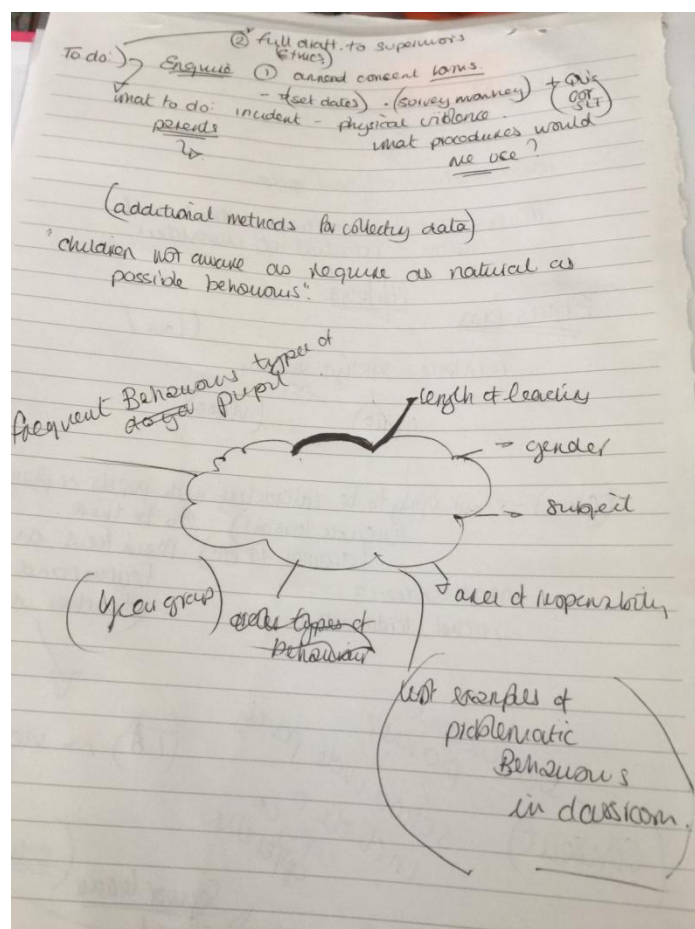 ② full draft to supervisors
(Ethics)
To do:
Enquire ① amend consent forms.
- (set dates) . (survey monkey) +
what to do: incident - physical violence.
parents
what procedures would
we use?
(additional methods for collecting data)
"children not aware as require as natural as
possible behaviours".
frequent Behaviours types of
pupil
length of teaching
gender
subject
area of responsibility
(Year group)
types of
behaviour
list examples of
problematic
Behaviours
in classroom.